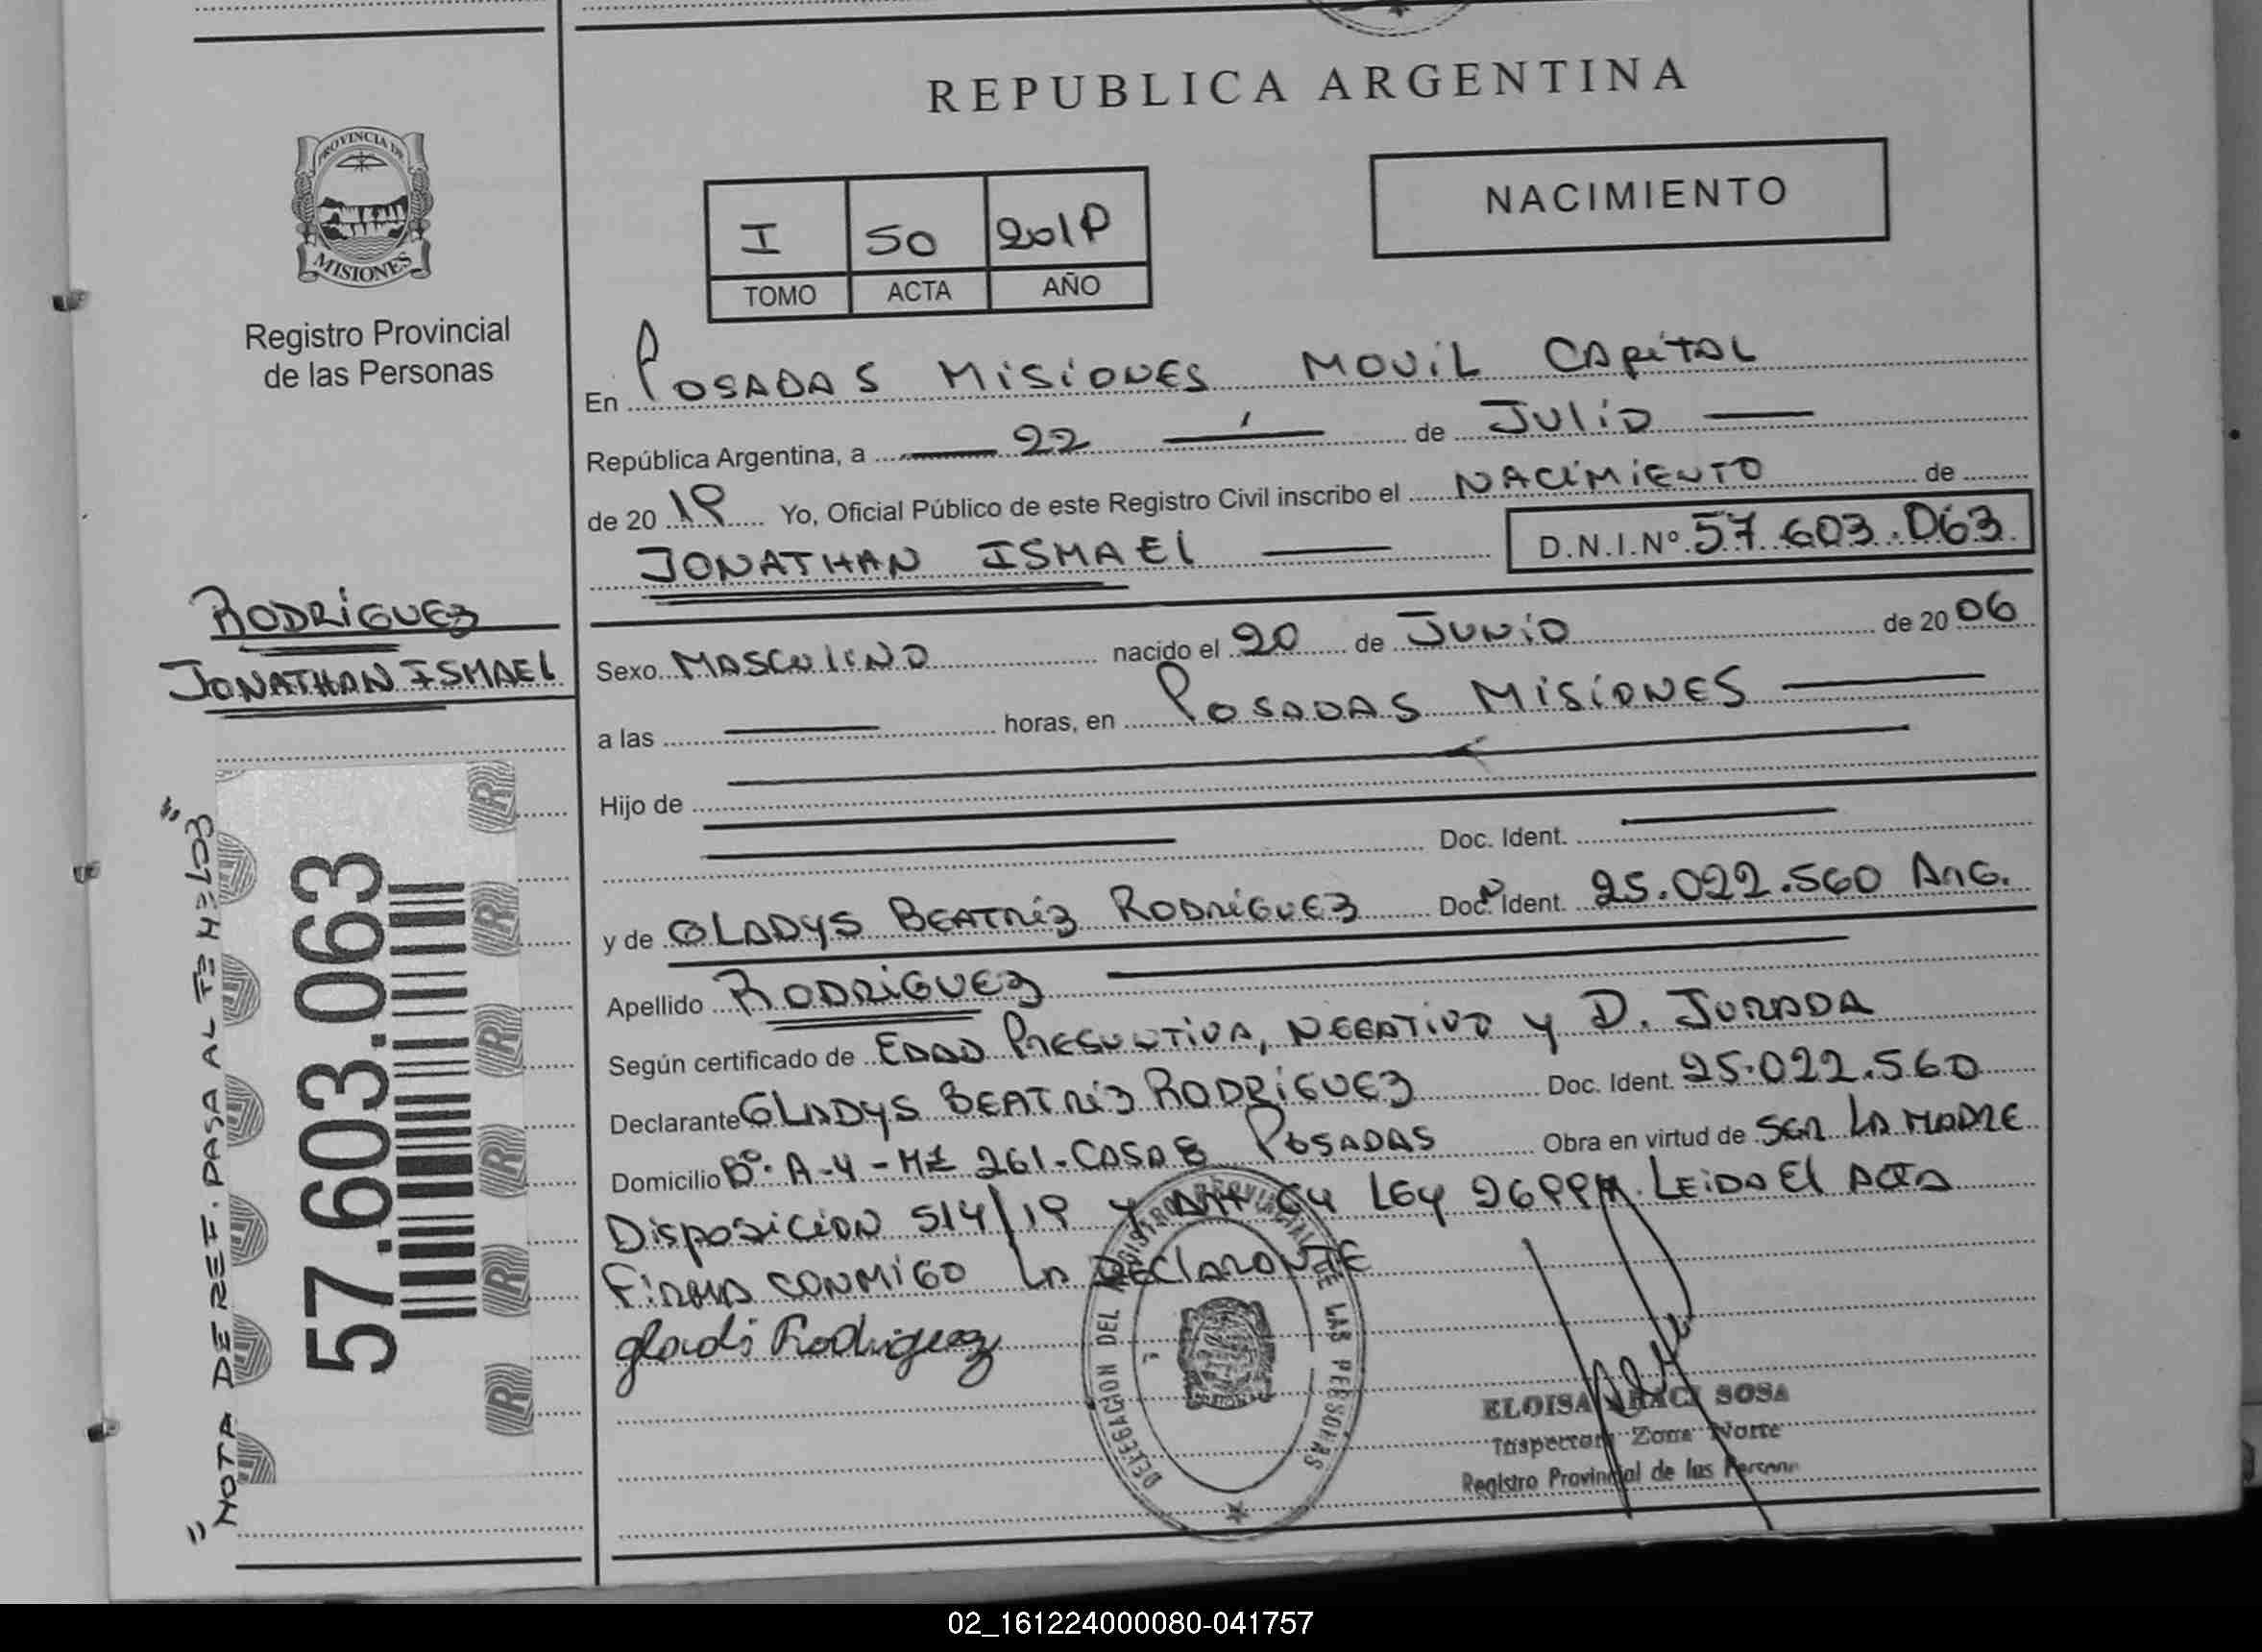 REPUBLICA ARGENTINA
PROVINCIA DE
MISIONES
Registro Provincial
de las Personas
I 50 2019
TOMO ACTA AÑO
NACIMIENTO
En POSADAS MISIONES MOVIL CAPITAL
República Argentina, a 22 de JULIO
de 20 19 Yo, Oficial Público de este Registro Civil inscribo el NACIMIENTO de
JONATHAN ISMAEL D.N.I.Nº 57.603.063
RODRIGUEZ
JONATHAN ISMAEL
Sexo MASCULINO nacido el 20 de JUNIO de 20 06
a las horas, en POSADAS MISIONES
Hijo de
Doc. Ident.
y de GLADYS BEATRIZ RODRIGUEZ Doc. Ident. 25.022.560 ARG.
Apellido RODRIGUEZ
Según certificado de EDAD PRESUNTIVA, NEGATIVO Y D. JURADA
Declarante GLADYS BEATRIZ RODRIGUEZ Doc. Ident. 25.022.560
Domicilio Bº. A-4 - MZ 261 - CASA 8 POSADAS Obra en virtud de SER LA MADRE
DISPOSICION 514/19 Y ART 64 LEY 26994. LEIDO EL ACTA
FIRMA CONMIGO LA DECLARANTE
gladi Rodriguez
DELEGACION DEL REGISTRO PROVINCIAL DE LAS PERSONAS
ELOISA ARACI SOSA
Inspectora Zona Norte
Registro Provincial de las Personas
57.603.063
"NOTA DE REF. PASA AL Fº Nº 103"
02_161224000080-041757